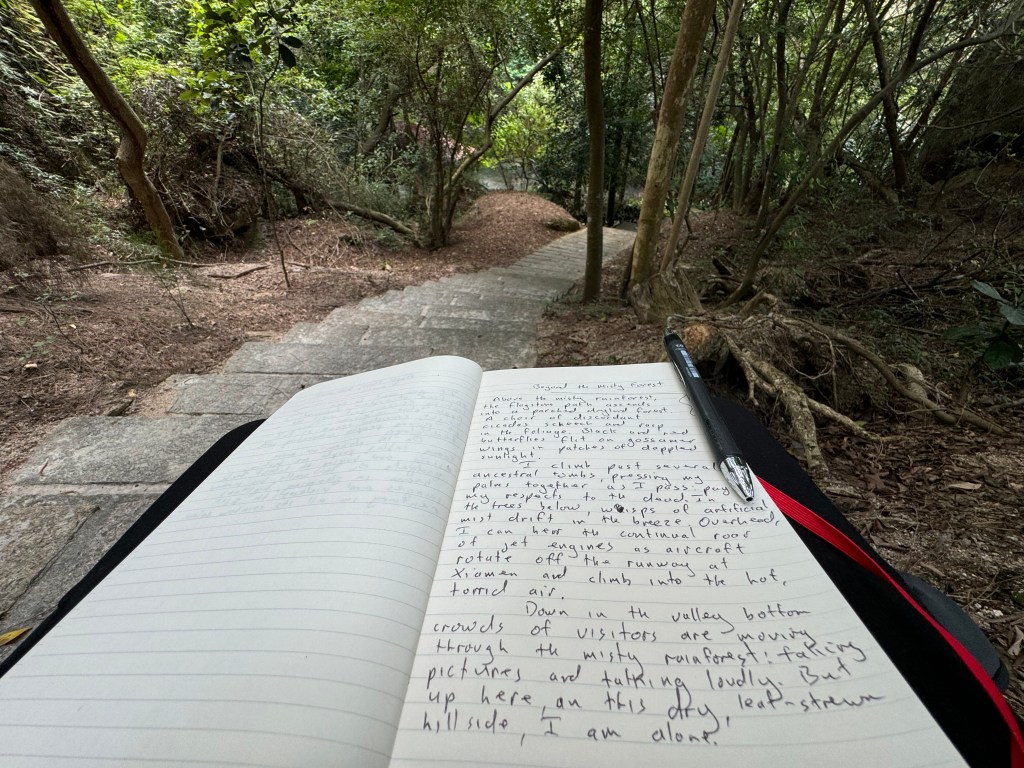 Beyond the Misty Forest
Above the misty rainforest,
the flagstone path ascends
into a parched dryland forest.
A choir of discordant
cicadas screech and rasp
in the foliage. Black and red
butterflies flit on gossamer
wings in patches of doppled
sunlight.
I climb past several
ancestral tombs, pressing my
palms together as I pass - pay
my respects to the dead. in
the trees below, wisps of artificial
mist drift in the breeze. Overhead,
I can hear the continual roar
of jet engines as aircraft
rotate off the runway at
Xiamen and climb into the hot,
torrid air.
Down in the valley bottom
crowds of visitors are moving
through the misty rainforest: taking
pictures and talking loudly. But
up here, on this dry, leaf-strewn
hillside, I am alone.